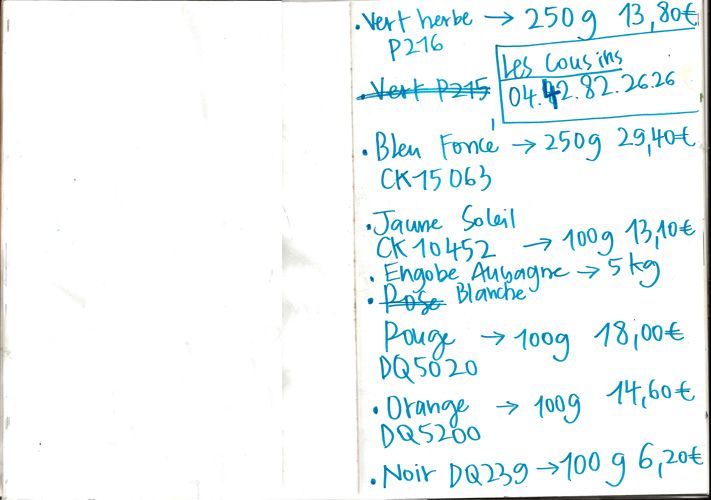 • Vert herbe → 250g 13,80€
P216
Les Cousins
04.42.82.26.26
• Vert P215
• Bleu Foncé → 250g 29,40€
CK15063
• Jaune Soleil
CK10452 → 100g 13,10€
• Engobe Aubagne → 5kg
Blanche
• Rose
Rouge → 100g 18,00€
DQ5020
• Orange → 100g 14,60€
DQ5200
• Noir DQ239 → 100g 6,20€